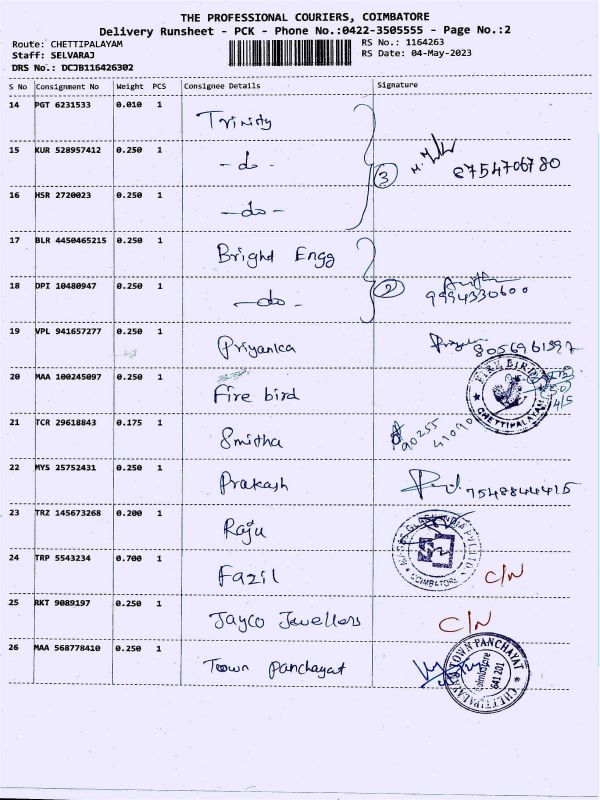 THE PROFESSIONAL COURIERS, COIMBATORE
Delivery Runsheet - PCK - Phone No.:0422-3505555 - Page No.:2
Route: CHETTIPALAYAM RS No.: 1164263
Staff: SELVARAJ RS Date: 04-May-2023
DRS No.: DCJB116426302
S No Consignment No Weight PCS Consignee Details Signature
14 PGT 6231533 0.010 1 Trinity
15 KUR 528957412 0.250 1 - do - 3 8754706780
16 HSR 2720023 0.250 1 - do -
17 BLR 4450465215 0.250 1 Bright Engg
18 DPI 10480947 0.250 1 - do - 2 9994330600
19 VPL 941657277 0.250 1 Priyanka 8056961997
20 MAA 100245097 0.250 1 Fire bird FIRE BIRD CHETTIPALAYAM
21 TCR 29618843 0.175 1 Smitha 90255 41090
22 MYS 25752431 0.250 1 Prakash 7548844415
23 TRZ 145673268 0.200 1 Raju
24 TRP 5543234 0.700 1 Fazil COIMBATORE C/N
25 RKT 9089197 0.250 1 Jayco Jewellers C/N
26 MAA 568778410 0.250 1 Town Panchayat TOWN PANCHAYAT Coimbatore 641 201 CHETTIPALAYAM